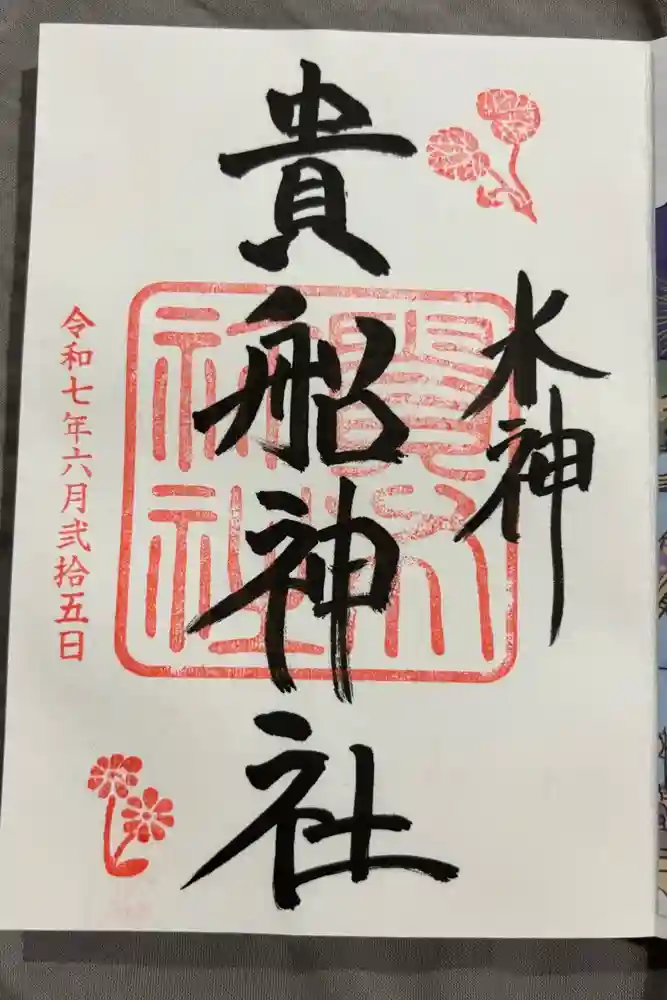 水神
貴船神社
令和七年六月弐拾五日